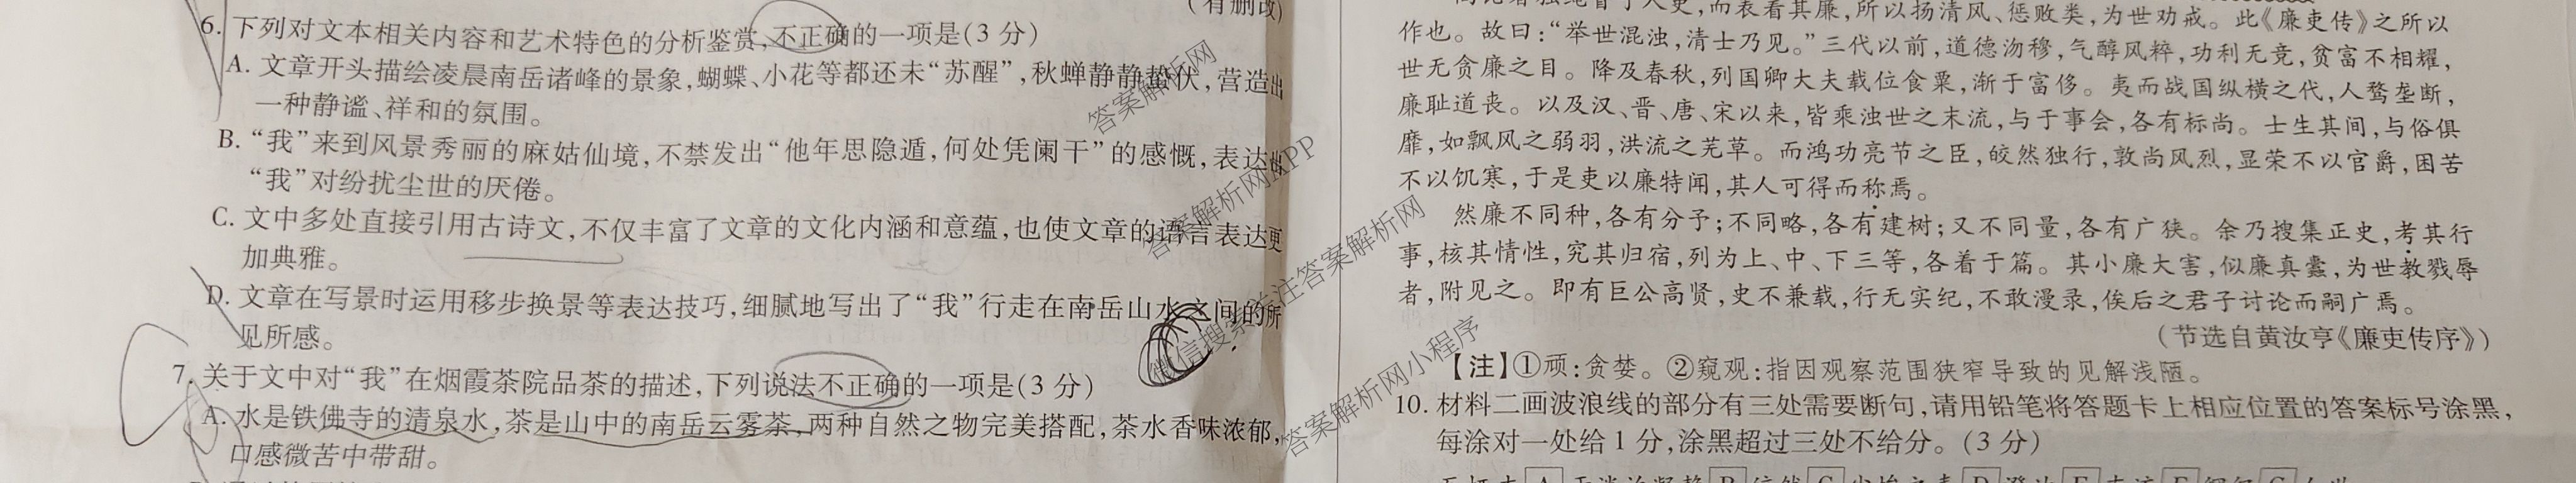 (有删改)
6. 下列对文本相关内容和艺术特色的分析鉴赏,不正确的一项是(3 分)
A. 文章开头描绘凌晨南岳诸峰的景象,蝴蝶、小花等都还未“苏醒”,秋蝉静静蛰伏,营造出
一种静谧、祥和的氛围。
B. “我”来到风景秀丽的麻姑仙境,不禁发出“他年思隐遁,何处凭阑干”的感慨,表达出
“我”对纷扰尘世的厌倦。
C. 文中多处直接引用古诗文,不仅丰富了文章的文化内涵和意蕴,也使文章的语言表达更
加典雅。
D. 文章在写景时运用移步换景等表达技巧,细腻地写出了“我”行走在南岳山水之间的所
见所感。
7. 关于文中对“我”在烟霞茶院品茶的描述,下列说法不正确的一项是(3 分)
A. 水是铁佛寺的清泉水,茶是山中的南岳云雾茶,两种自然之物完美搭配,茶水香味浓郁,
口感微苦中带甜。
而表着其廉,所以扬清风、惩败类,为世劝戒。此《廉吏传》之所以
作也。故曰:“举世混浊,清士乃见。”三代以前,道德沕穆,气醇风粹,功利无竞,贫富不相耀,
世无贪廉之目。降及春秋,列国卿大夫载位食粟,渐于富侈。夷而战国纵横之代,人骛垄断,
廉耻道丧。以及汉、晋、唐、宋以来,皆乘浊世之末流,与于事会,各有标尚。士生其间,与俗俱
靡,如飘风之弱羽,洪流之芜草。而鸿功亮节之臣,皎然独行,敦尚风烈,显荣不以官爵,困苦
不以饥寒,于是吏以廉特闻,其人可得而称焉。
然廉不同种,各有分予;不同略,各有建树;又不同量,各有广狭。余乃搜集正史,考其行
事,核其情性,究其归宿,列为上、中、下三等,各着于篇。其小廉大害,似廉真蠹,为世教戮辱
者,附见之。即有巨公高贤,史不兼载,行无实纪,不敢漫录,俟后之君子讨论而嗣广焉。
(节选自黄汝亨《廉吏传序》)
【注】①顽:贪婪。②窥观:指因观察范围狭窄导致的见解浅陋。
10. 材料二画波浪线的部分有三处需要断句,请用铅笔将答题卡上相应位置的答案标号涂黑,
每涂对一处给 1 分,涂黑超过三处不给分。(3 分)
答案解析网
答案解析网APP
微信搜索关注答案解析网
答案解析网小程序